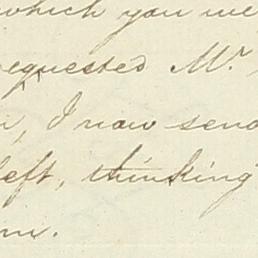 which you we
requested Mr.
, I now send
left, thinking